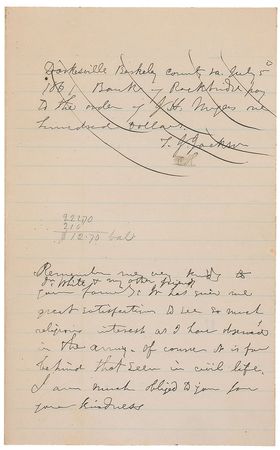 Darkesville Berkeley county Va. July 5
1861 Bank of Rockbridge pay
to the order of J. H. Myers one
hundred dollars.
T. J. Jackson
222.70
210
$12.70 bal
Remember me very kindly to
Dr White & my other friends
your family. It has given me
great satisfaction to see so much
religious interest as I have observed
in the army. Of course it is far
behind that seen in civil life.
I am much obliged to you for
your kindness